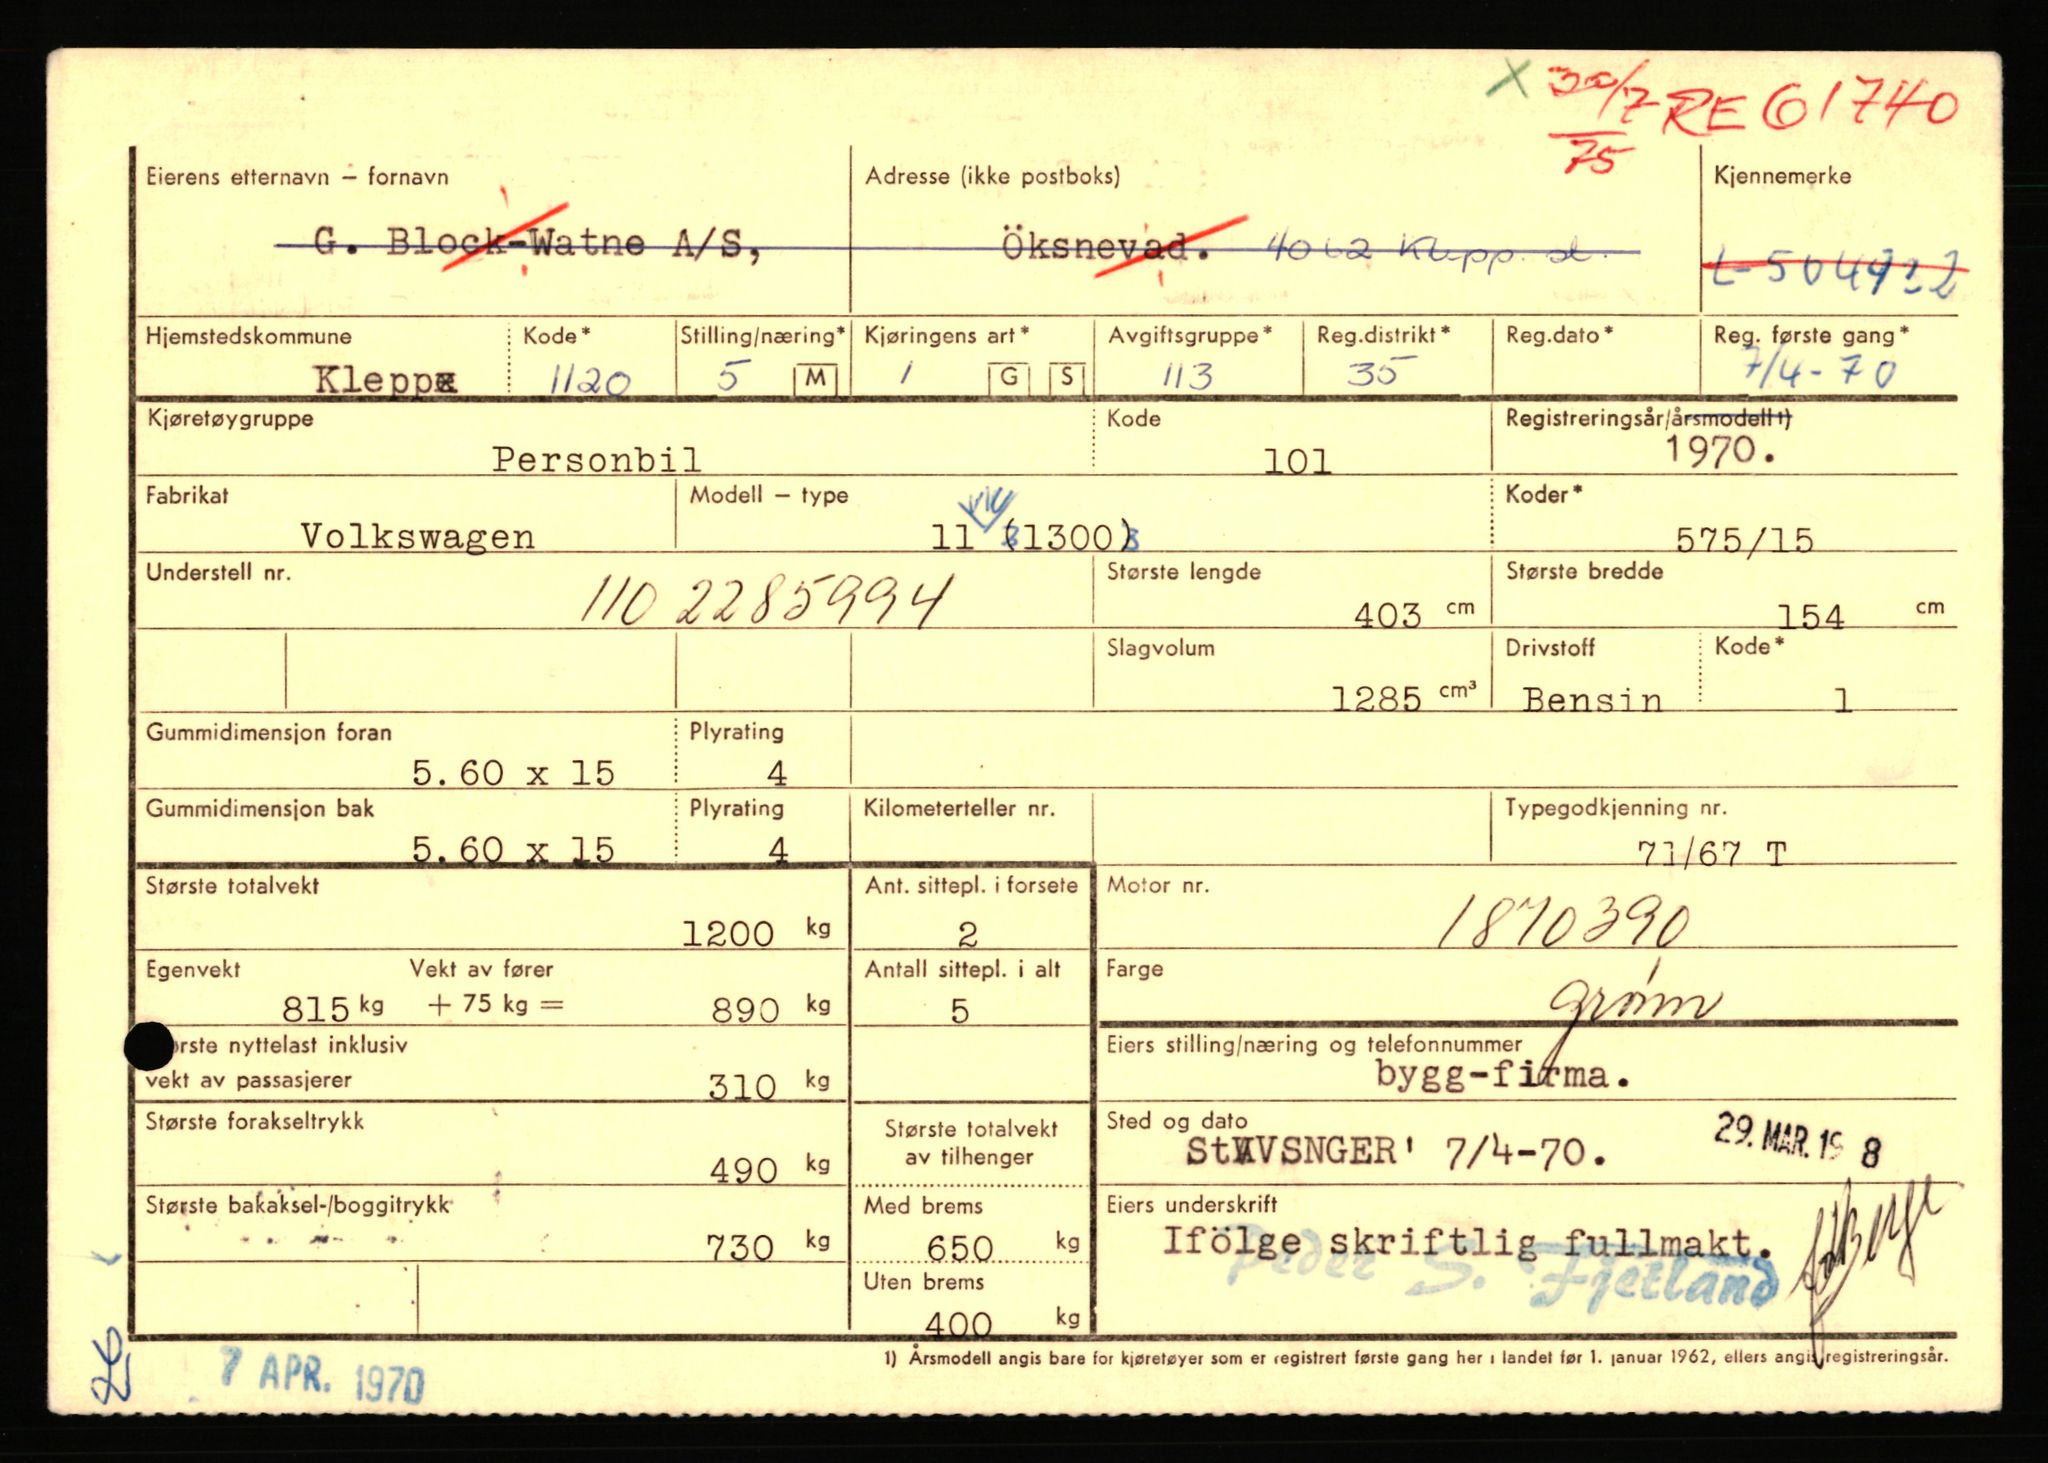 X 30/7 75 RE 61740
Eierens etternavn – fornavn
Adresse (ikke postboks)
Kjennemerke
G. Block-Watne A/S,
Öksnevad. 4062 Klepp st.
Hjemstedskommune
Kode*
Stilling/næring*
Kjøringens art*
Avgiftsgruppe*
Reg.distrikt*
Reg.dato*
Reg. første gang*
Klepp 1120 5 M 1 G S 113 35 7/4-70
Kjøretøygruppe
Kode
Registreringsår/årsmodell 1)
Personbil 101 1970.
Fabrikat
Modell – type
Koder*
Volkswagen 11 (1300) 575/15
Understell nr.
Største lengde
Største bredde
110 2285994 403 cm 154 cm
Slagvolum
Drivstoff
Kode*
1285 cm³ Bensin 1
Gummidimensjon foran
Plyrating
5.60 x 15 4
Gummidimensjon bak
Plyrating
Kilometerteller nr.
Typegodkjenning nr.
5.60 x 15 4 71/67 T
Største totalvekt
Ant. sittepl. i forsete
Motor nr.
1200 kg 2 1870390
Egenvekt
Vekt av fører
Antall sittepl. i alt
Farge
815 kg + 75 kg = 890 kg 5 grønn
ørste nyttelast inklusiv
vekt av passasjerer 310 kg
Eiers stilling/næring og telefonnummer
bygg-firma.
Største forakseltrykk
490 kg
Største totalvekt
av tilhenger
Sted og dato
StAVSNGER' 7/4-70. 29. MAR. 19 8
Største bakaksel-/boggitrykk
730 kg
Med brems
650 kg
Eiers underskrift
Ifölge skriftlig fullmakt.
Peder S. Fjetland
Uten brems
400 kg
1) Årsmodell angis bare for kjøretøyer som er registrert første gang her i landet før 1. januar 1962, ellers angis registreringsår.
7 APR. 1970